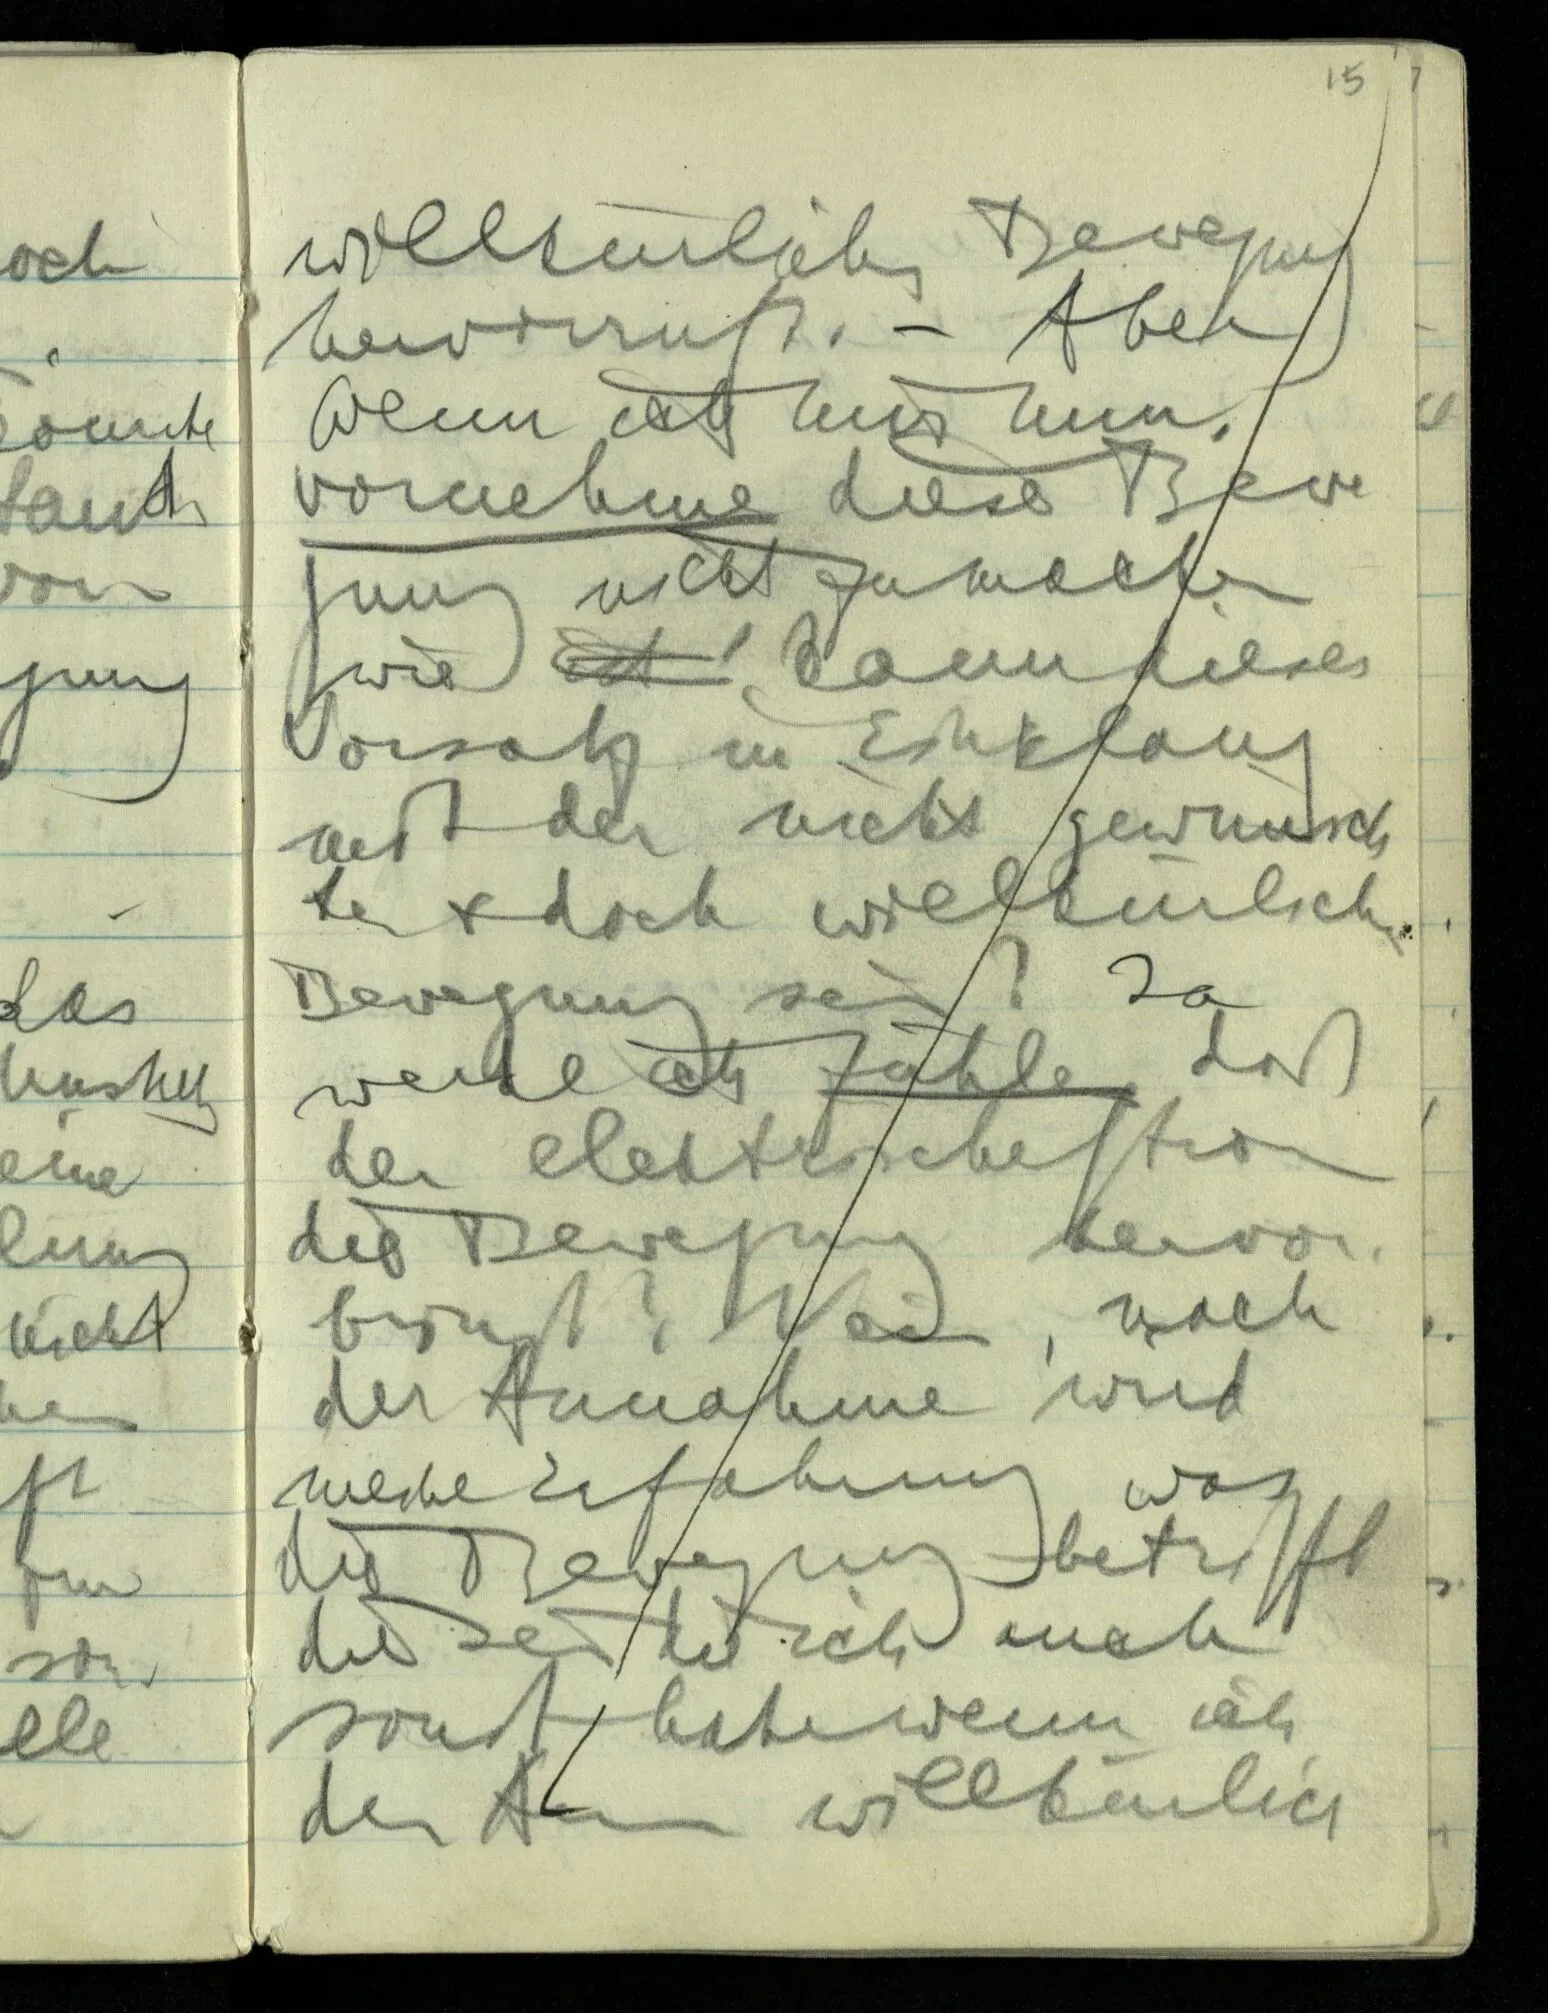 15
willkürliche Bewegung
hervorruft. – Aber
Wenn ich mir nun
vornehme diese Bewe
gung nicht zu machen
wie ist kann dieser
Vorsatz im Einklang
mit der nicht gewünsch
ten & doch willkürlichen
Bewegung sein? Ja
werde ich fühlen daß
der elektrische Strom
die Bewegung hervor
bringt? Nein, nach
der Annahme wird
meine Erfahrung was
die Bewegung betrifft
die sein die ich auch
sonst habe wenn ich
den Arm willkürlich
och
konnte
von
gung
das
eine
nicht
elle